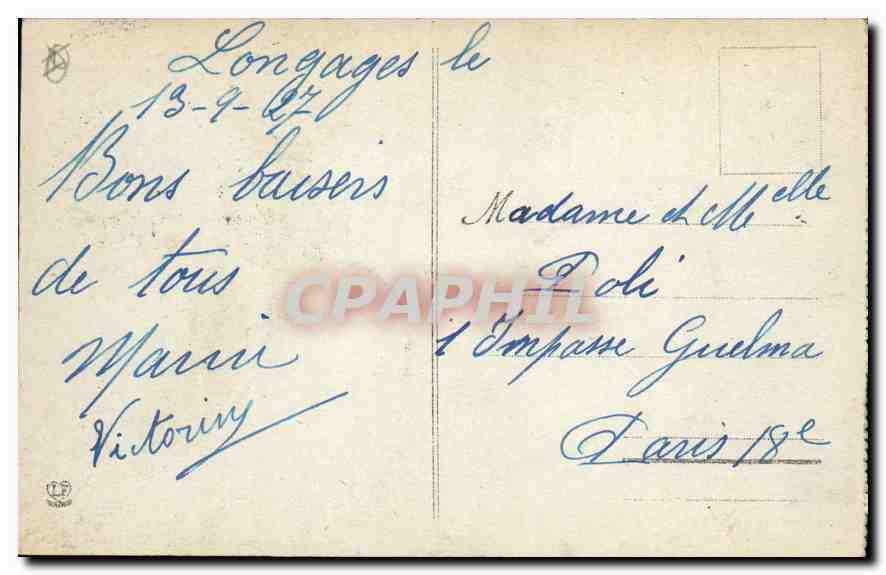 Longages le
13-9-27
Bons baisers
de tous
Marin
Madame et Melle
Poli
1 Impasse Guelma
Paris 18e
CPAPHIL
LF